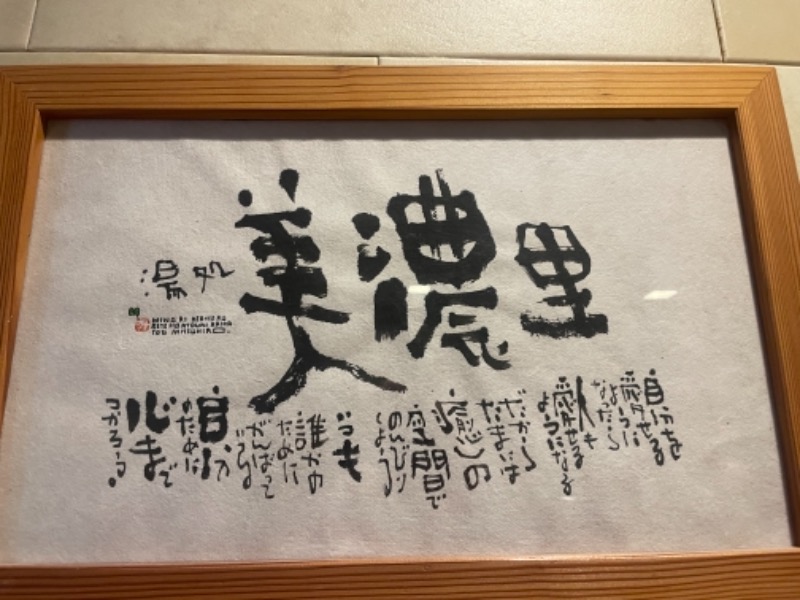 湯処
美濃里
自分を
愛せる
ように
なったら
人も
愛せる
ようになる
だから
たまには
癒しの
空間で
のんびり
しよう
いつも
誰かの
ために
がんばって
いる
自分
のために
心まで